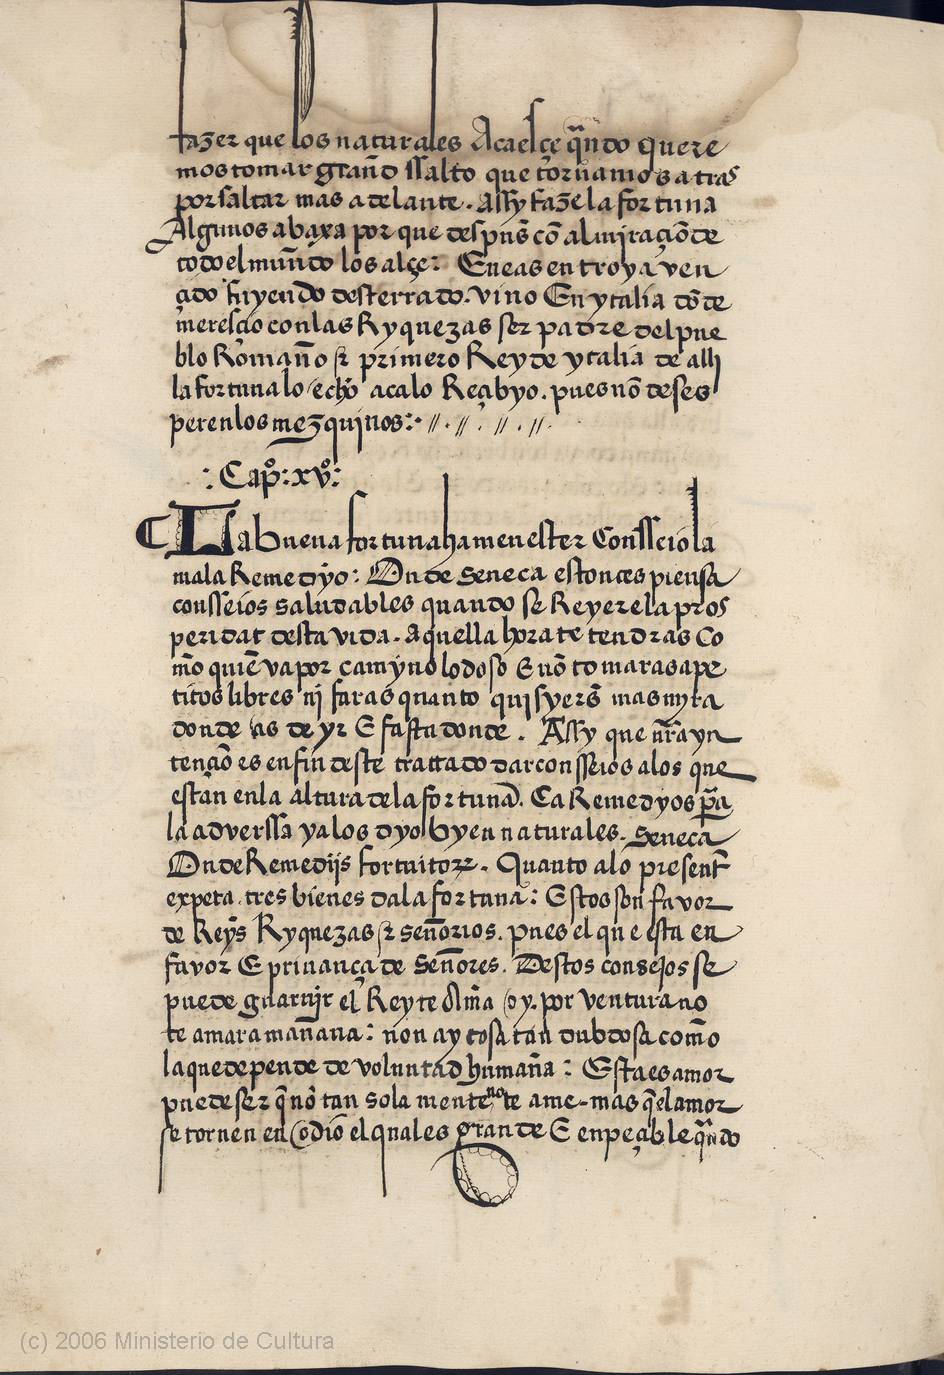 fazer que los naturales Acaesçe qñdo quere
mos tomar grañd ssalto que tornamos atras
por saltar mas adelante. Assy faze la fortuna
Algunos abaxa por que despũs cõ almiraçiõ de
todo el muñdo los alçe: Eneas en troya ven
çido fuyendo desterrado. vino En ytalia dõde
meresçio con las Ryquezas ser padre del pue
blo Romano & primero Rey de ytalia de alli
la fortuna lo echo acalo Reçabyo. pues nõ deses
peren los mezquinos:
: Capº: xvº:
La buena fortuna ha menester Consseio la
mala Remedyo: Onde Seneca estonces piensa
consseios saludables quando se Reyere la pros
peridat desta vida. Aquella hora te tendras Co
mo quiẽ va por camyno lodoso E nõ tomaras ape
titos libres nj faras quanto quisyerẽs mas myra
donde as de yr E fasta donde. Assy que nr̃a yn
tençiõ es en fin deste trattado dar consseios alos que
estan enla altura dela fortuna. Ca Remedyos pa
la adverssa ya los dyo byen naturales. Seneca
Onde Remedijs fortuitorꝝ. Quanto alo present̃
expeta. tres bienes da la fortuna: Estos son favor
de Reyẽs Ryquezas & señorios. pues el que esta en
favor E privança de Señores. Destos consejos se
puede guarnjr el Rey te Ama oy. por ventura no
te amara mañana: non ay cosa tan dubdosa como
la que depende de voluntad humana: Esta es amor
puede ser q̃ nõ tan sola mente no te ame. mas q̃ el amor
se tornen en odio el qual es grande E enpeçable qñdo
(c) 2006 Ministerio de Cultura